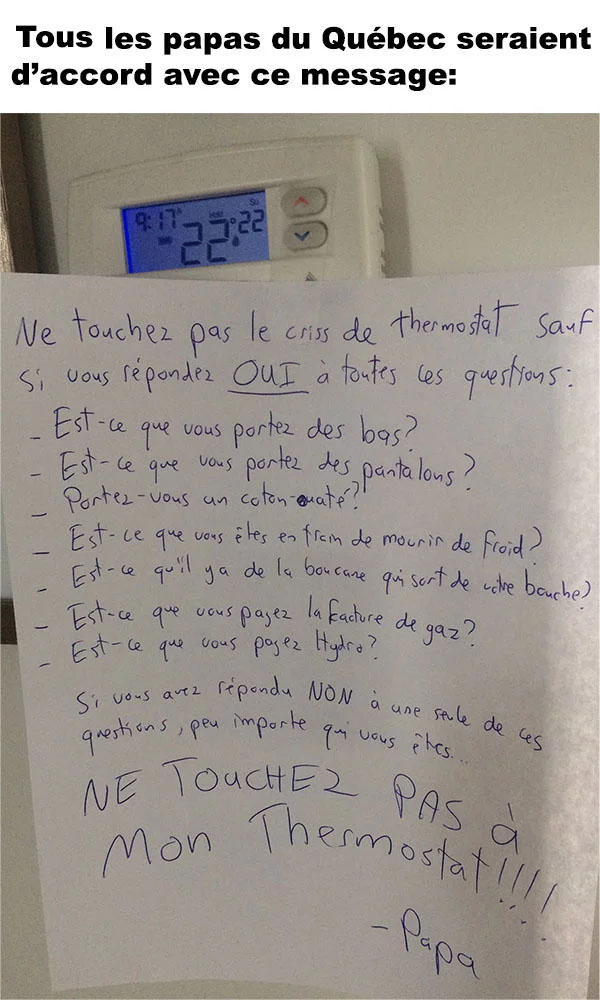 Tous les papas du Québec seraient
d'accord avec ce message:
9:17
Hold
Su
22°22
Ne touchez pas le criss de thermostat sauf
si vous répondez OUI à toutes ces questions:
- Est-ce que vous portez des bas?
- Est-ce que vous portez des pantalons?
- Portez-vous un coton-ouaté?
- Est-ce que vous êtes en train de mourir de froid?
- Est-ce qu'il y a de la boucane qui sort de votre bouche?
- Est-ce que vous payez la facture de gaz?
- Est-ce que vous payez Hydro?
Si vous avez répondu NON à une seule de ces
questions, peu importe qui vous êtes...
NE TOUCHEZ PAS à
MON Thermostat!!!!
- Papa